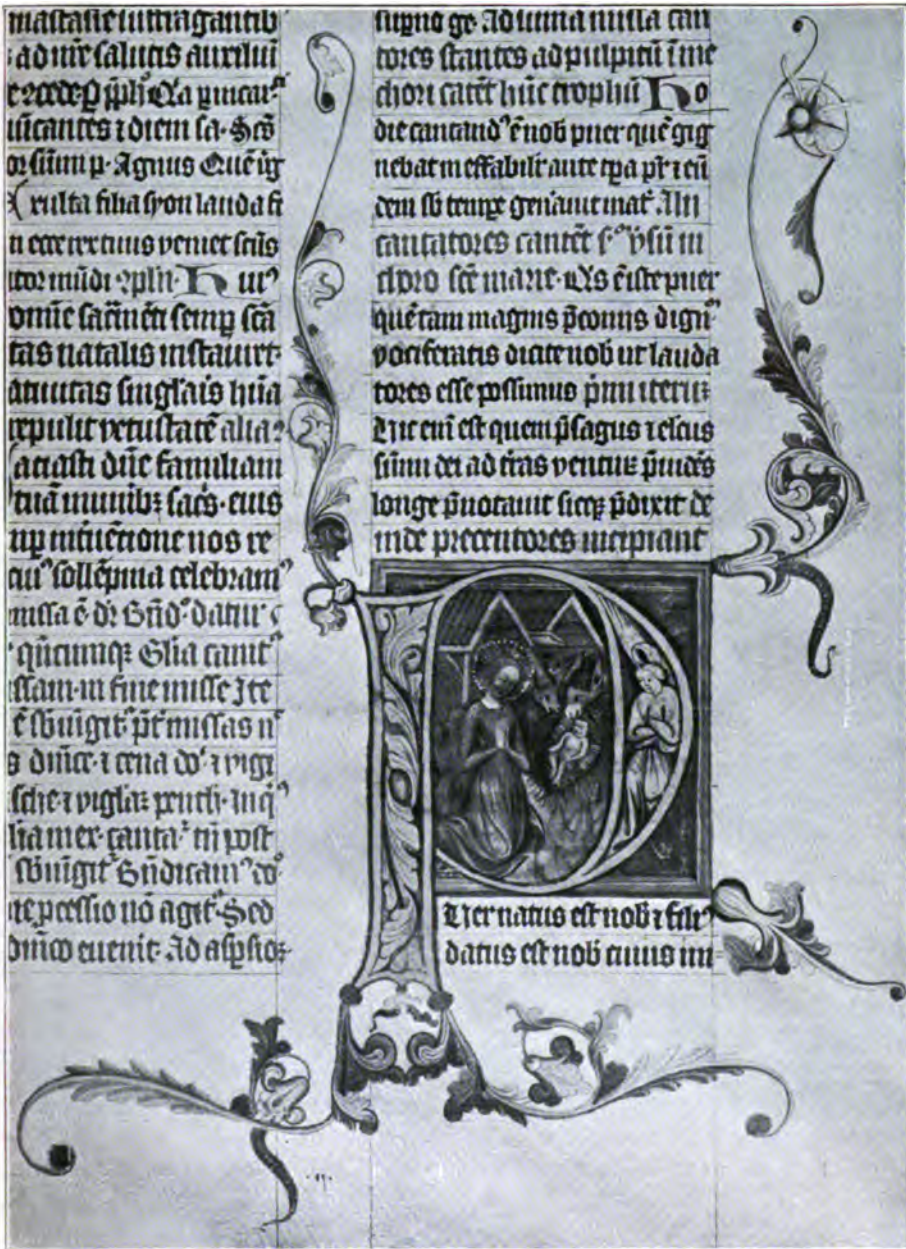 nastasie suffragantib
ad nr̄e salutis auxiliū
uīcantes ⁊ diem sa· Scō
or sūim p· Agnus Quē ūg
exulta filia syon lauda fi
ecce rex tuus veniet scūs
tor mūdi ꝯplēn· Hui⁹
omīe sac̄mēti semꝑ scā
tas natalis instauret
atiuitas singlaīs huā
repulit vetustatē alia·
Saciasti dn̄e familiam
tuā munibꝫ sac̄s· eius
ꝑ int̄uētione nos re
cui⁹ sollēpnia celebram⁹
missa ē dr Bn̄d° datur
qn̄cumqꝫ Glia cant̄
in fine misse Ite
ē sb̄iūgit· pt̄ missas n̄
s dn̄ice· ⁊ cena do̓ ⁊ vigi
sche ⁊ viglaꝫ penth· In q°
cantat̄ tn̄ post
sb̄iūgit̄ Bn̄dicam⁹ do
ne ꝓcessio nō agit̄· Sed
dn̄ico euenit· Ad aspsioꝫ
supno ge· Ad ultīma missa can
tores stantes ad pulpitū ī me
chori catēt hūc trophū Ho
die cantand⁹ ē nob puer quē gig
nebat ineffabilit̄ ante tꝑa pr̄ ⁊ eū
dem sb̄ tempe genauit mat̄· Alii
cantatores cantēt s°· v̓sū in
choro scē marie· Qs ē iste puer
quē tam magnis p̄coniis dignū
vociferatis dicite nob ut lauda
tores esse possimus p̄mi iterū
Hic eni est quem p̄sagus ⁊ elcūs
sūmi dei ad t̄ras ventuꝝ p̄uidēs
longe p̄notauit sicqꝫ p̄dixit De
inde precentores incipiant
P
Uer natus est nob ⁊ fili⁹
datus est nob cuius im